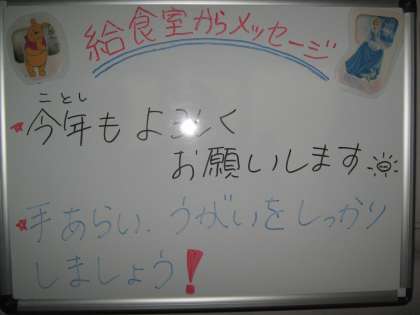 給食室からメッセージ
ことし
★今年もよろしく
お願いします
★手あらい、うがいをしっかり
しましょう!